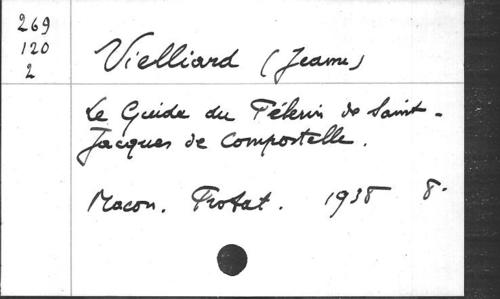 269
120
2
Vielliard (Jeanne)
Le Guide du Pélerin de Saint-
Jacques de Compostelle.
Macon. Protat. 1938 8°